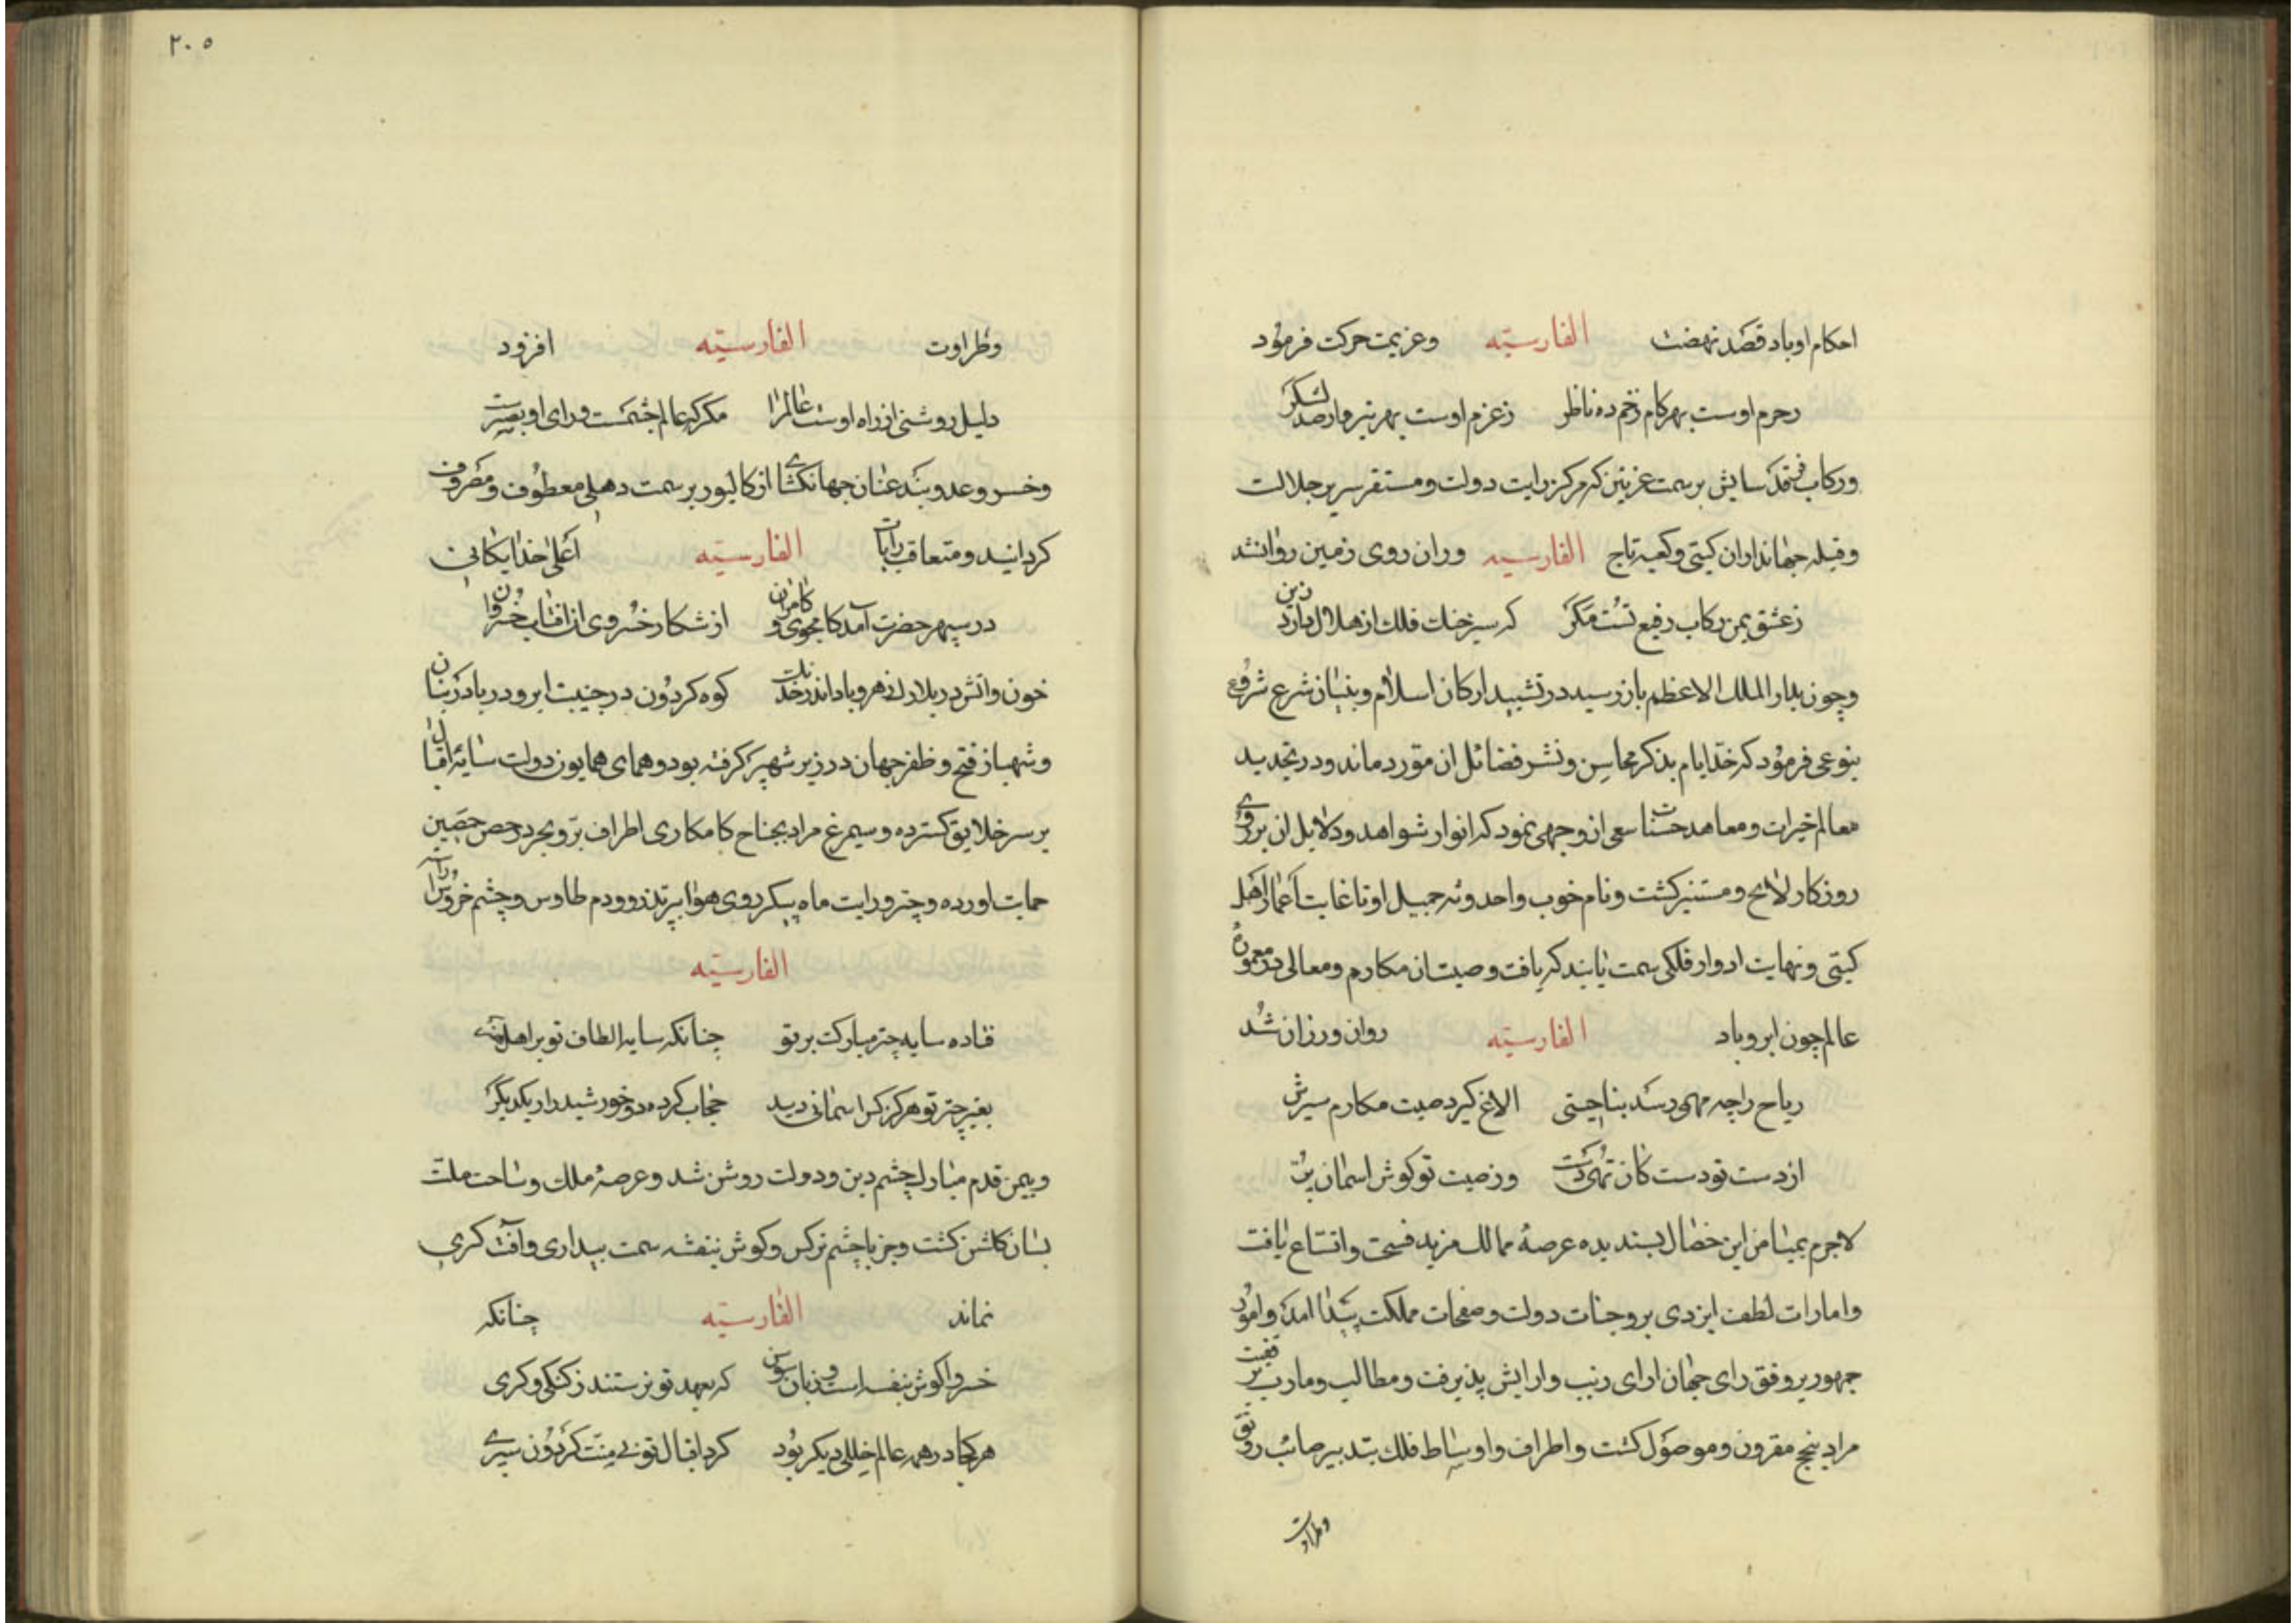 احکام او باد قصد نهضت الفارسیّه وعزیمت حرکت فرمود
زحزم اوست بهر کام زخم ده ناظر زعزم اوست بهر تیر مار صد لشکر
ورکاب فرقد سایش بر سمت غزنین که مرکز رایت دولت ومستقر سریر جلالت
وقبله جهانداران کیتی وکعبه تاج الفارسیه وران روی زمین روان شد
زعشق یمن رکاب رفیع تست مکر که سیر خنک فلک از هلال دارد زین
وچون بدار الملک الاعظم باز رسید در تشیید ارکان اسلام وبنیان شرع شروع
بنوعی فرمود که خدّ ایام بذکر محاسن ونشر فضائل ان مورد ماند ودر تجدید
معالم خیرات ومعاهد حسنات سعی از وجهی نمود که انوار شواهد ودلایل ان بر روی
روزکار لایح ومستنیر کشت ونام خوب واحدوثه جمیل او تا غایت اعمار اهل
کیتی ونهایت ادوار فلکی سمت تابید که یافت وصیت ان مکارم ومعالی در معمورهٔ
عالم چون ابر وباد الفارسیّه روان ورزان شد
ریاح را چه محل در سد بناچیتی الاغ کیرد صیت مکارم سیرش
از دست تو دست کان تهی کشت وز صیت تو کوش اسمان پر
لاجرم بمیامن این خصال پسندیده عرصهٔ ممالک مزید فسحت واتساع یافت
وامارات لطف ایزدی بر وجنات دولت وصفحات مملکت پیدا امد وامور
جمهور بر وفق رای جهان ارای زیب وارایش پذیرفت ومطالب ومارب بر قضیت
مراد بنجح مقرون وموصول کشت واطراف واوساط فلک بتدبیر صائب رونق
وطراوت
٢٠٥
وطراوت الفارسیّه افزود
دلیل روشنی از راه اوست عالم را مکر که عالم چشمست ورای او بصرست
وخسرو عدو بند عنان جهانکشای از کالیور بر سمت دهلی معطوف ومصروف
کردانید ومتعاقب رایات الفارسیّه اعلی خدایکانی
در سپهر حضرت آمد کامجوی وکامران از شکار خسروی ان افتاب خسروان
خون واتش در بلارک زهر وباد اندر خدنک کوه کردون در جنیبت ابر ودریا در بنان
وشهباز فتح وظفر جهان در زیر شهپر کرفته بود وهمای همایون دولت سایهٔ اقبال
بر سر خلایق کسترده وسیمرغ مراد بجناح کامکاری اطراف برّ وبحر در حصن حصین
حمایت اورده وچتر ورایت ماه پیکر روی هوا بپر تذرو ودم طاوس وچشم خروس آراسته
الفارسیّه
فتاده سایه چتر مبارکت بر تو چنانکه سایه الطاف تو بر اهل
بغیر چتر تو هرکز کرا اسمانی دید حجاب کرده دو خورشید را ز یکدیکر
وبیمن قدم مبارک چشم دین ودولت روشن شد وعرصهٔ ملک وساحت ملت
بسان کلشن کشت وجز با چشم نرکس وکوش بنفشه سمت بیداری وآفت کری
نماند الفارسیّه چنانکه
خسروا کوش بنفشه است وزبان سوسن که بعهد تو نرستند ز کنکی وکری
هر کجا در همه عالم خللی دیکر بود کرد اقبال تو بی منّت کردون سپری